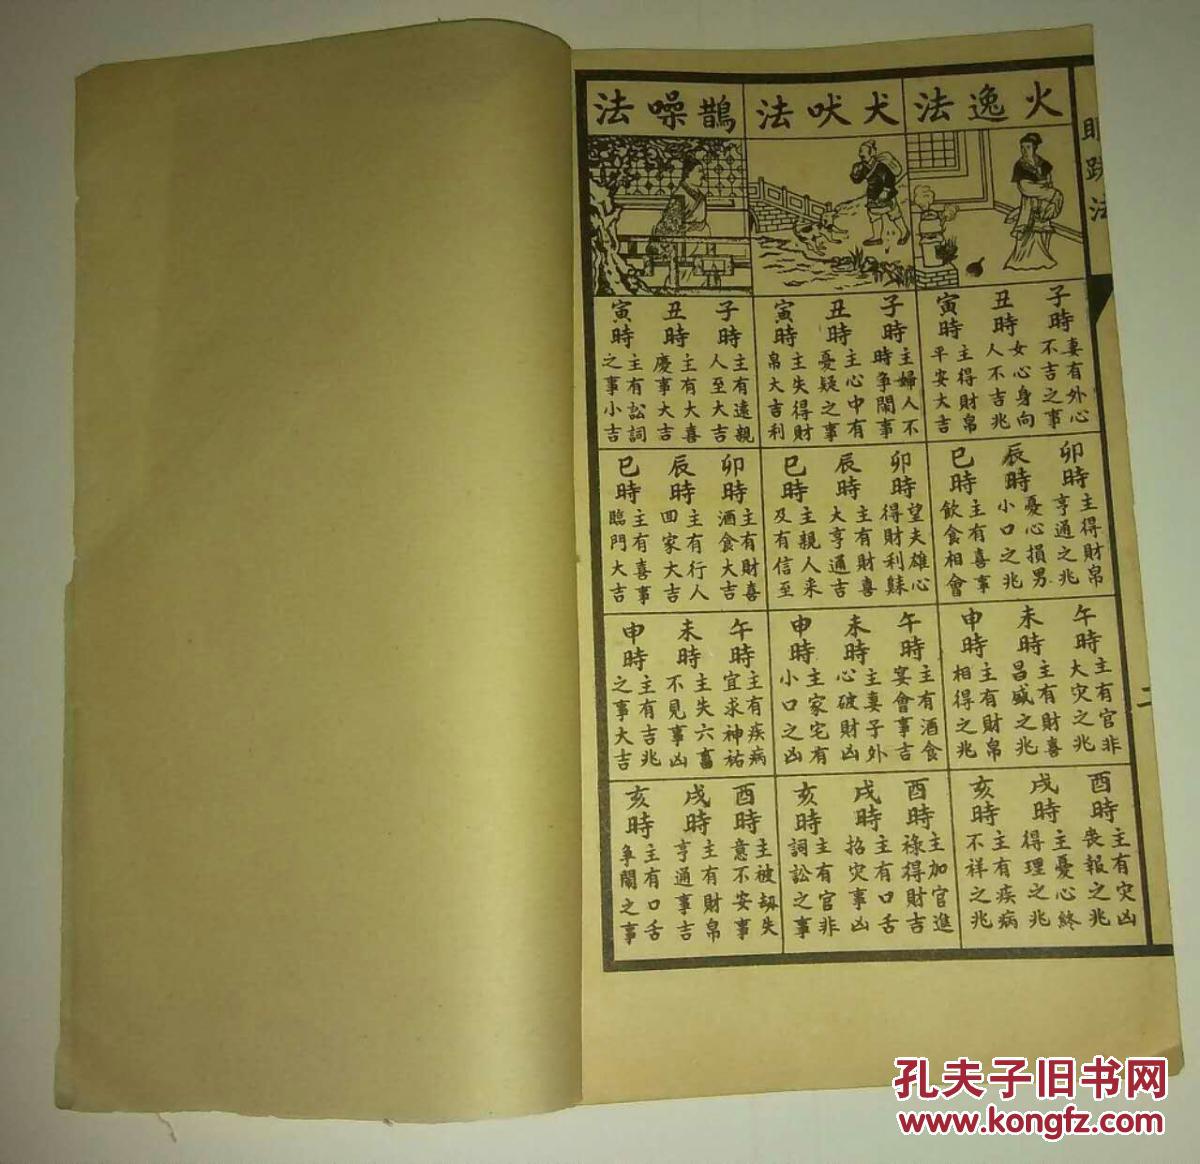 眼跳法
二
火逸法
子時
妻有外心
不吉之事
丑時
女心身向
人不吉兆
寅時
主得財帛
平安大吉
卯時
主得財帛
亨通之兆
辰時
憂心損男
小口之兆
巳時
主有喜事
飲食相會
午時
主有官非
大灾之兆
未時
主有財喜
昌盛之兆
申時
主有財帛
相得之兆
酉時
主有灾凶
丧報之兆
戌時
主憂心終
得理之兆
亥時
主有疾病
不祥之兆
犬吠法
子時
主婦人不
時爭鬧事
丑時
主心中有
憂疑之事
寅時
主失得財
帛大吉利
卯時
望夫雄心
得財利
辰時
主有財喜
大亨通吉
巳時
主親人来
及有信至
午時
主有酒食
宴會事吉
未時
主妻子外
心破財凶
申時
主家宅有
小口之凶
酉時
主加官進
祿得財吉
戌時
主有口舌
招灾事凶
亥時
主有官非
詞訟之事
鵲噪法
子時
主有遠親
人至大吉
丑時
主有大喜
慶事大吉
寅時
主有訟詞
之事小吉
卯時
主有財喜
酒食大吉
辰時
主有行人
回家大吉
巳時
主有喜事
臨門大吉
午時
主有疾病
宜求神祐
未時
主失六畜
不見事凶
申時
主有吉兆
之事大吉
酉時
主被刼失
意不安事
戌時
主有財帛
亨通事吉
亥時
主有口舌
爭鬧之事
孔夫子旧书网
www.kongfz.com